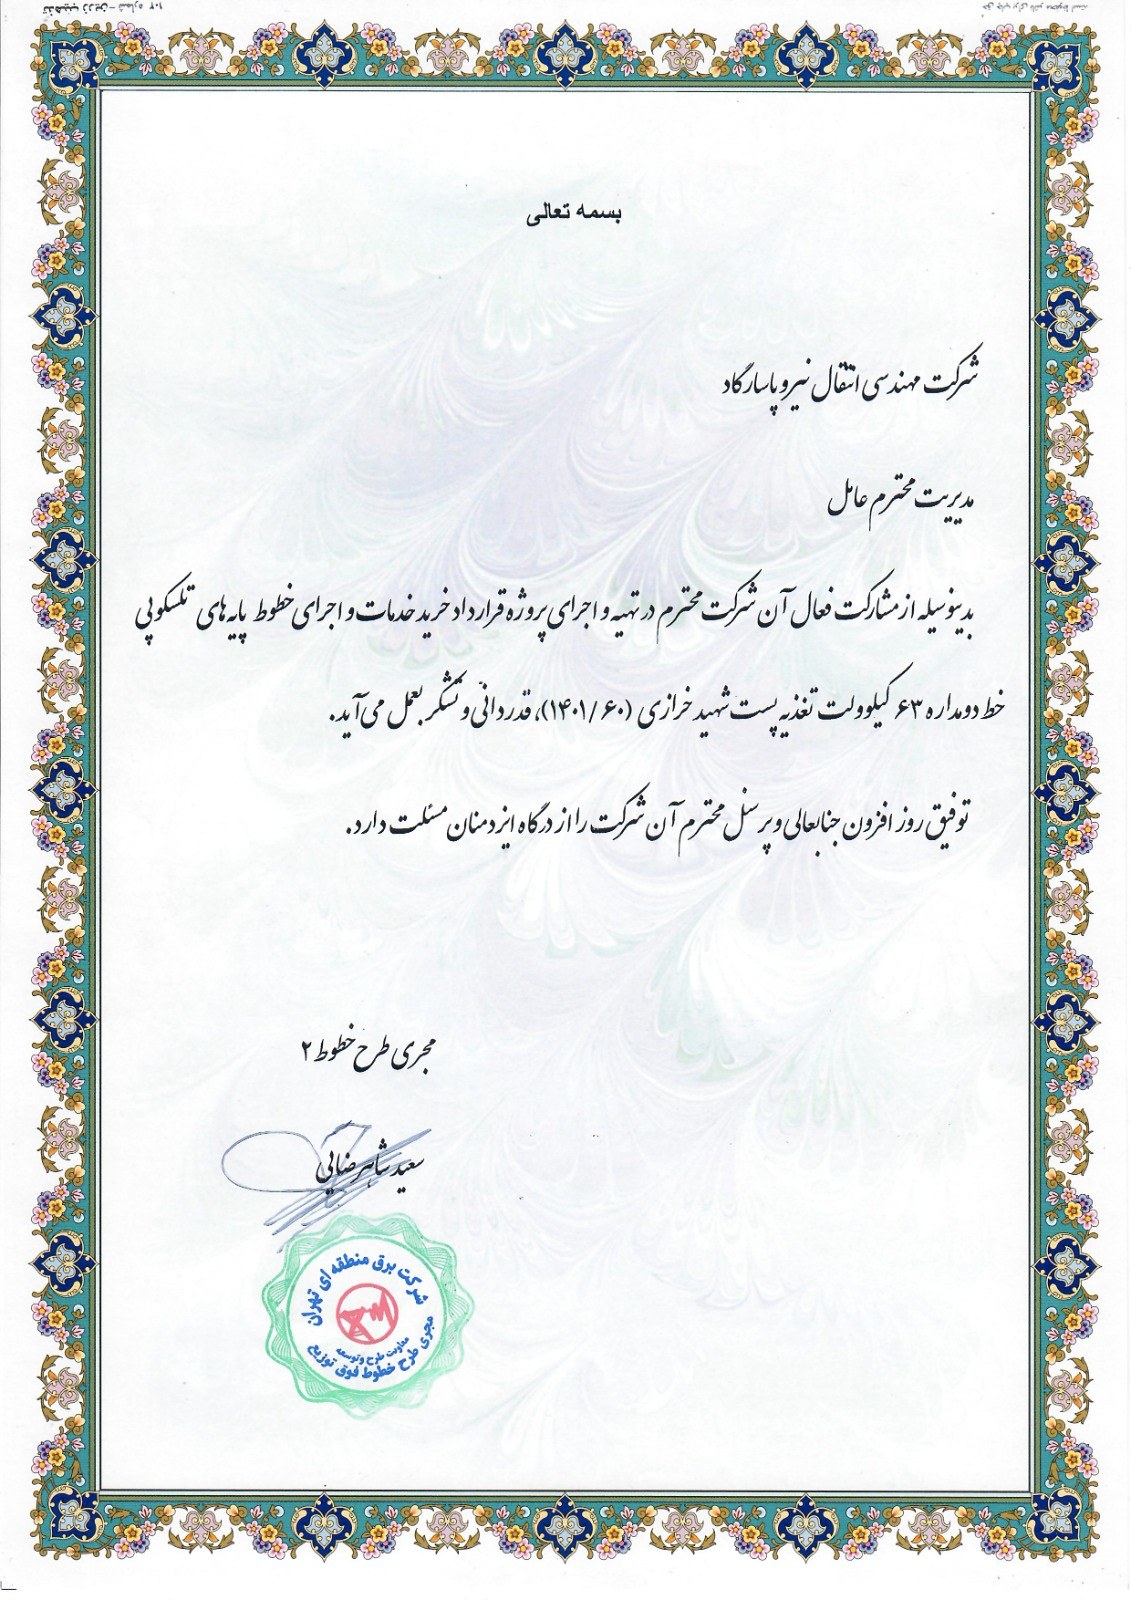 بسمه تعالی
شرکت مهندسی انتقال نیرو پاسارگاد
مدیریت محترم عامل
بدینوسیله از مشارکت فعال آن شرکت محترم در تهیه و اجرای پروژه قرارداد خرید خدمات و اجرای خطوط پایه های تلسکوپی
خط دومداره ۶۳ کیلوولت تغذیه پست شهید خرازی (۱۴۰۱/۶۰)، قدردانی و تشکر بعمل می آید.
توفیق روز افزون جنابعالی و پرسنل محترم آن شرکت را از درگاه ایزد منان مسئلت دارد.
مجری طرح خطوط ۲
سعید شاهرضائی
شرکت برق منطقه ای تهران
معاونت طرح و توسعه
مجری طرح خطوط فوق توزیع
تذهیب زرین - شماره ۱۰۲